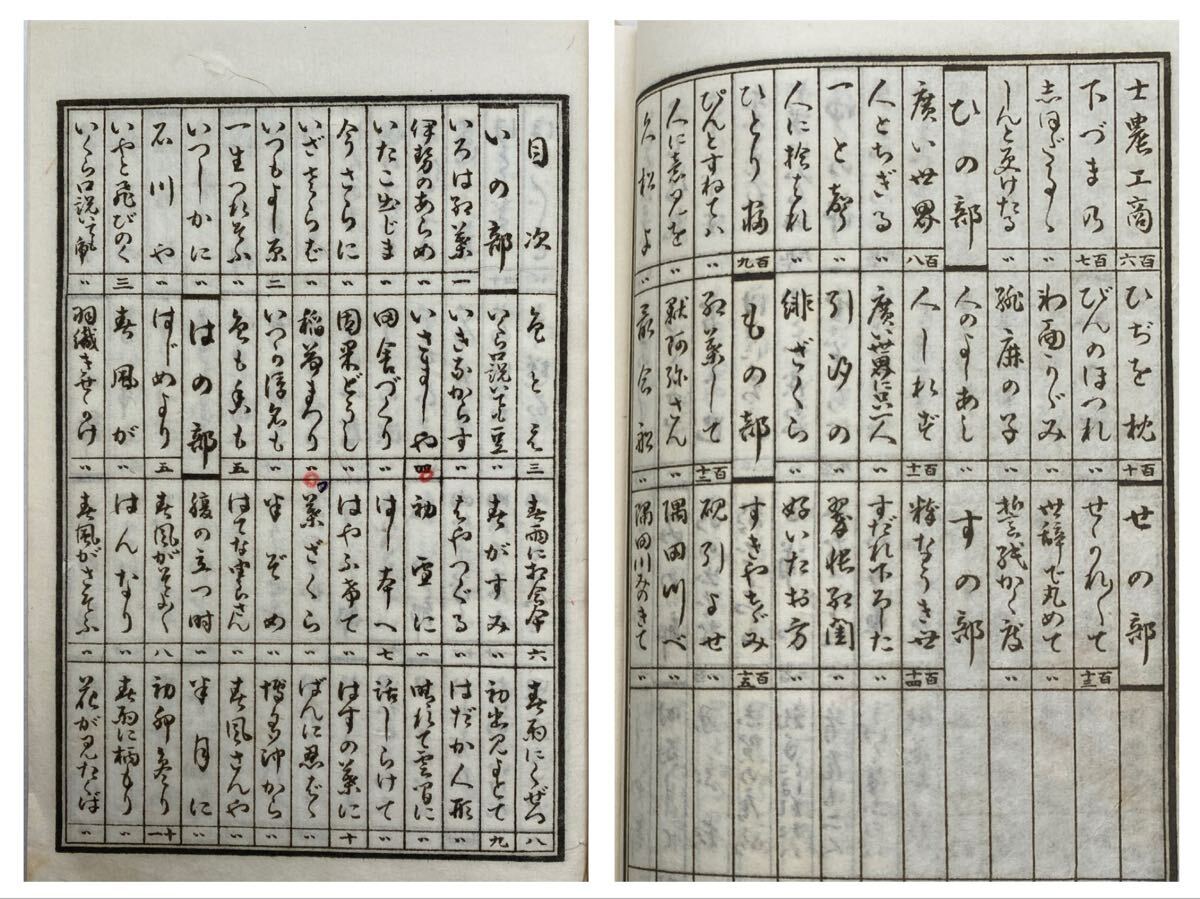 目次
いの部
いろは紅葉 一
伊勢のあらめ 〃
いたこ出じま 〃
今さらに 〃
いざさらば 〃
いつもよし原 二
一生つれそふ 〃
いつしかに 〃
石川や 〃
いやと飛びのく 三
いくら口説いても 〃
色と 三
いくら口説いても豆 〃
いきなからす 〃
いさましや 四
田舎づくり 〃
因果どうし 〃
稲荷まつり 〃
いつか浮名も 〃
色も香も 五
はの部
はじめより 五
春風が 〃
羽織きせかけ 〃
春雨にお合傘 六
春がすみ 〃
はやつぐる 〃
初雪に 〃
はし本へ 七
はやふけて 〃
葉ざくら 〃
半ぞめ 〃
はてな 〃
腹の立つ時 〃
春風がそよ〳〵 八
はんなり 〃
春風がさそふ 〃
春雨にくぜつ 八
初出見よとて 九
はだか人形 〃
晴れて雲間に 〃
話しらけて 〃
はすの葉に 十
ばんに忍ばゞ 〃
博多沖から 〃
春風さんや 〃
半月に 〃
初卯参り 十一
春雨に柄もり 〃
花が見たくば 〃
士農工商 百六
下づまの 百七
志ほ 〃
しんと更けたる 〃
ひの部
廣い世界 百八
人とちぎる 〃
一と聲 〃
人に捨られ 〃
ひとり寝 百九
ぴんとすねてハ 〃
人に意見を 〃
久松よ 〃
ひぢを枕 百十
びんのほつれ 〃
かゞみ 〃
麻の子 〃
人のよしあし 〃
人しれず 百十一
廣い世界に只一人 〃
引汐の 〃
緋ざくら 〃
もの部
紅葉して 百十二
阿弥さん 〃
最合船 〃
せの部
せかれ〳〵て 百十三
世辞で丸めて 〃
誓紙かく度 〃
すの部
粋なうき世 百十四
すだれ下ろした 〃
翠帳紅閨 〃
好いたお方 〃
すきやちゞみ 百十五
硯引よせ 〃
隅田川べ 〃
隅田川みのきて 〃